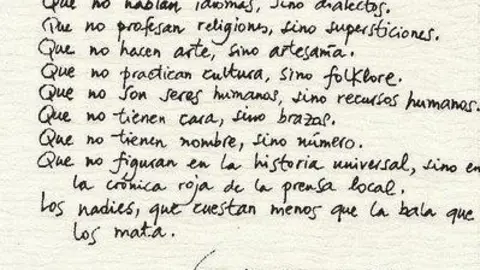 Que no hablan idiomas, sino dialectos.
Que no profesan religiones, sino supersticiones.
Que no hacen arte, sino artesanía.
Que no practican cultura, sino folklore.
Que no son seres humanos, sino recursos humanos.
Que no tienen cara, sino brazos.
Que no tienen nombre, sino número.
Que no figuran en la historia universal, sino en
la crónica roja de la prensa local.
Los nadies, que cuestan menos que la bala que
los mata.